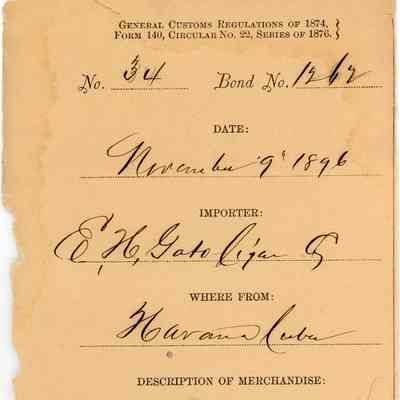 GENERAL CUSTOMS REGULATIONS OF 1874,
FORM 140, CIRCULAR NO. 22, SERIES OF 1876.
No. 34 Bond No. 1262
DATE:
November 9" 1896
IMPORTER:
E. H. Gato Cigar Co
WHERE FROM:
Havana Cuba
DESCRIPTION OF MERCHANDISE: